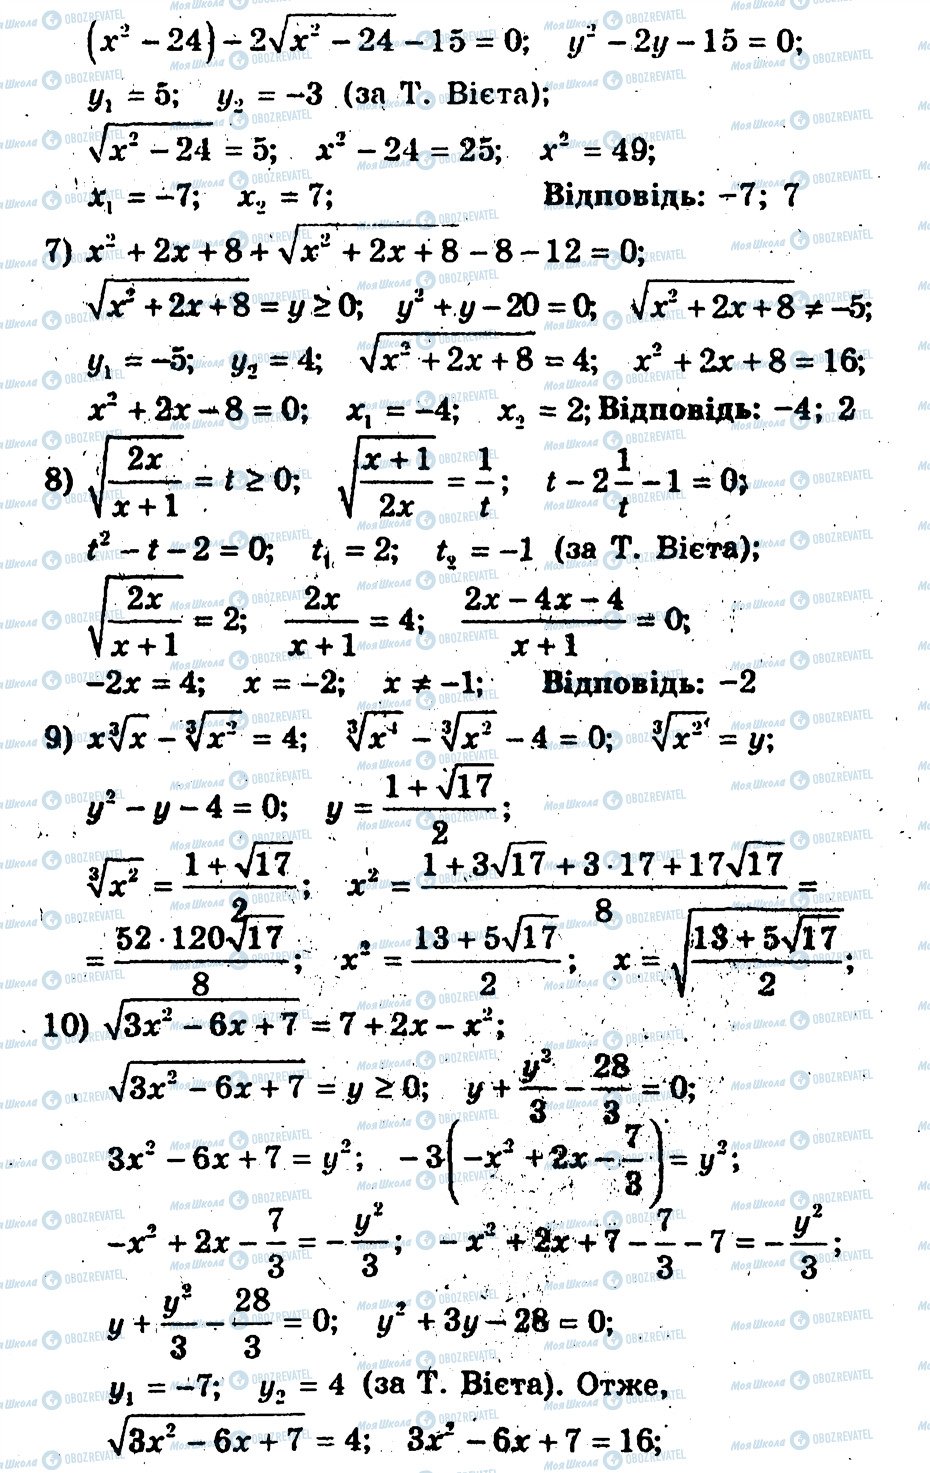 (x² − 24) − 2√(x² − 24) − 15 = 0; y² − 2y − 15 = 0;
y₁ = 5; y₂ = −3 (за Т. Вієта);
√(x² − 24) = 5; x² − 24 = 25; x² = 49;
x₁ = −7; x₂ = 7; Відповідь: −7; 7
7) x² + 2x + 8 + √(x² + 2x + 8) − 8 − 12 = 0;
√(x² + 2x + 8) = y ≥ 0; y² + y − 20 = 0; √(x² + 2x + 8) ≠ −5;
y₁ = −5; y₂ = 4; √(x² + 2x + 8) = 4; x² + 2x + 8 = 16;
x² + 2x − 8 = 0; x₁ = −4; x₂ = 2; Відповідь: −4; 2
8) √(2x/(x + 1)) = t ≥ 0; √((x + 1)/(2x)) = 1/t; t − 2 1/t − 1 = 0;
t² − t − 2 = 0; t₁ = 2; t₂ = −1 (за Т. Вієта);
√(2x/(x + 1)) = 2; 2x/(x + 1) = 4; (2x − 4x − 4)/(x + 1) = 0;
−2x = 4; x = −2; x ≠ −1; Відповідь: −2
9) x∛x − ∛(x²) = 4; ∛(x⁴) − ∛(x²) − 4 = 0; ∛(x²) = y;
y² − y − 4 = 0; y = (1 + √17)/2;
∛(x²) = (1 + √17)/2; x² = (1 + 3√17 + 3·17 + 17√17)/8 =
= (52·120√17)/8; x² = (13 + 5√17)/2; x = √((13 + 5√17)/2);
10) √(3x² − 6x + 7) = 7 + 2x − x²;
√(3x² − 6x + 7) = y ≥ 0; y + y²/3 − 28/3 = 0;
3x² − 6x + 7 = y²; −3(−x² + 2x − 7/3) = y²;
−x² + 2x − 7/3 = −y²/3; −x² + 2x + 7 − 7/3 − 7 = −y²/3;
y + y²/3 − 28/3 = 0; y² + 3y − 28 = 0;
y₁ = −7; y₂ = 4 (за Т. Вієта). Отже,
√(3x² − 6x + 7) = 4; 3x² − 6x + 7 = 16;
МояШкола OBOZREVATEL